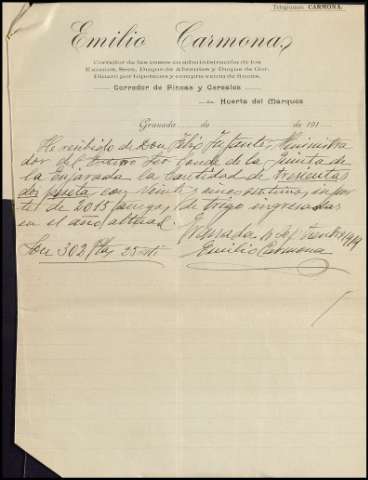 Telegramas CARMONA.
Emilio Carmona
Corredor de las casas en administración de los
Excmos. Sres. Duque de Abrantes y Duque de Gor.
Dinero por hipotecas y compra venta de fincas.
Corredor de Fincas y Cereales
Huerta del Marqués
Granada de de 191
He recibido de Don Administra
dor del Excmo Sor Conde de la Quinta de
la Enjarada la cantidad de trescientas
dos pesetas con veinte y cinco centimos impor
te de 2015 fanegas de trigo ingresadas
en el año actual.
Granada
Son 302 Ptas 25 cts
Emilio Carmona